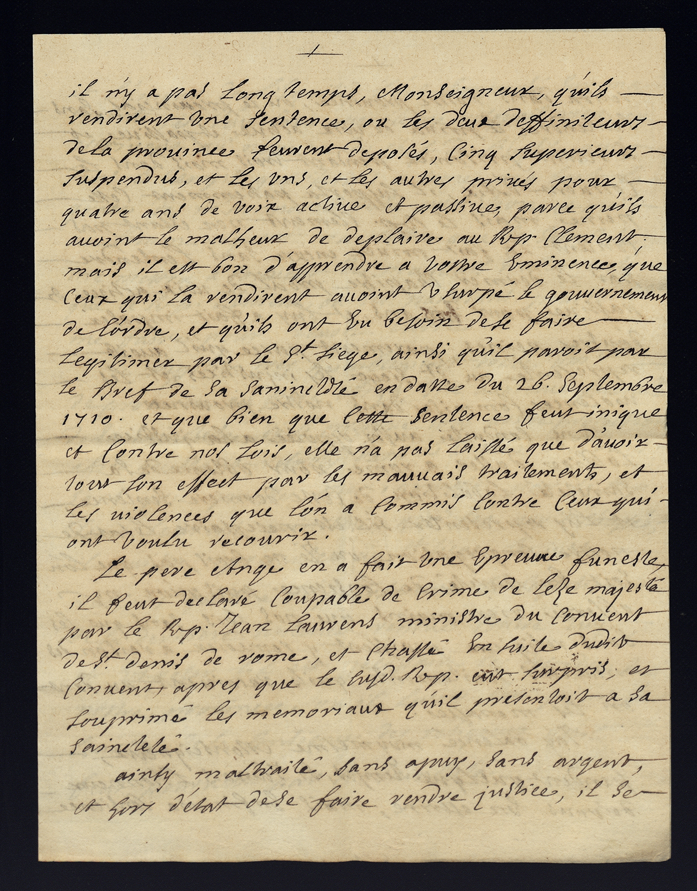 il n'y a pas Long temps, Monseigneur, qu'ils
rendirent vne sentence, ou les deux deffiniteurs
de la prouince feurent deposés, Cinq superieurs
suspendus, et les vns, et les autres priués pour
quatre ans de voix actiue et passiue, parce qu'ils
auoint le malheur de deplaire au Rp. Clement.
mais il est bon d'apprendre a vostre Eminence, que
Ceux qui la rendirent auoint vsurpé le gouuernement
de l'ordre, et qu'ils ont eu besoin de se faire
Legitimer par le St. siege, ainsi qu'il paroit par
le Bref de sa saincteté en datte du 26. septembre
1710. et que bien que Cette sentence feut inique
et Contre nos Lois, elle n'a pas laissé que d'auoir
tout son effect par les mauuais traitements, et
les violences que l'ón a Commis Contre Ceux qui
ont voulu recourir.
Le pere Ange en a fait vne Epreuue funeste,
il feut declaré Coupable de Crime de leze majesté
par le Rp. Jean Laurens ministre du Conuent
de St. denis de rome, et Chassé En suite dudit
Conuent, apres que le susd. Rp. eut surpris, et
souprimé les memoriaux qu'il presentoit a sa
saincteté.
ainsy maltraité, sans apuy, sans argent,
et hors d'état de se faire rendre justice, il se